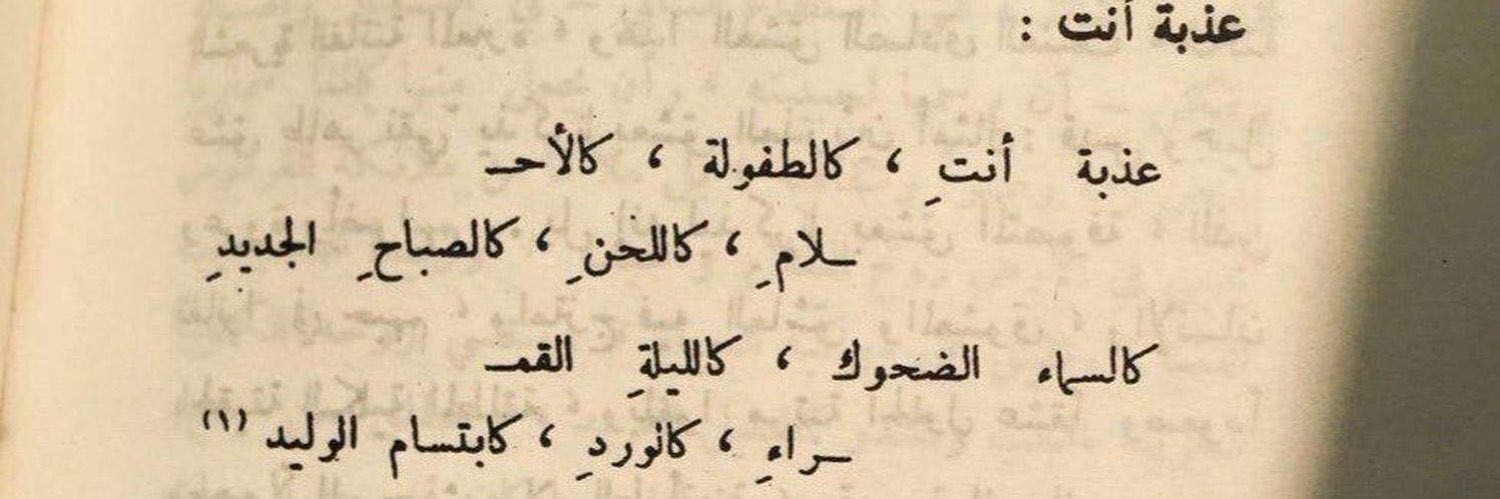 عذبة أنت :
عذبة أنتِ ، كالطفولة ، كالأحـ
ـلامِ ، كاللحنِ ، كالصباحِ الجديدِ
كالسماء الضحوك ، كالليلةِ القمـ
ـراءِ ، كانوردِ ، كابتسام الوليد (١)